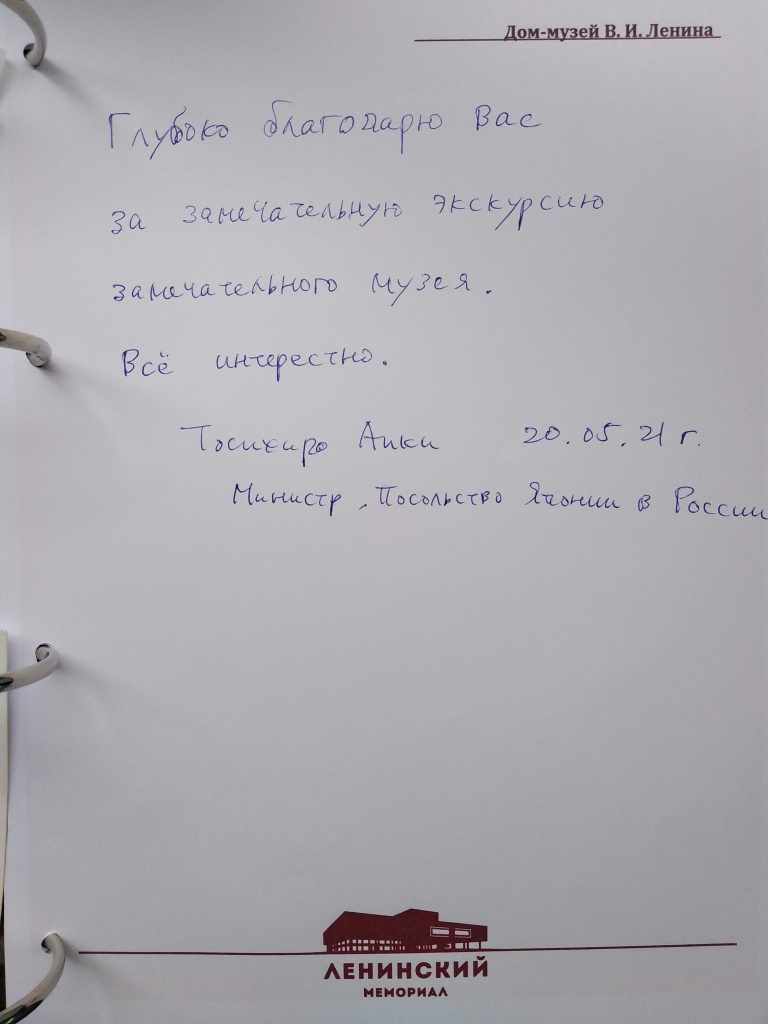 Дом-музей В. И. Ленина
Глубоко благодарю Вас
за замечательную экскурсию
замечательного музея.
Всё интерестно.
Тосихиро Аики 20.05.21 г.
Министр, Посольство Японии в России
ЛЕНИНСКИЙ
МЕМОРИАЛ